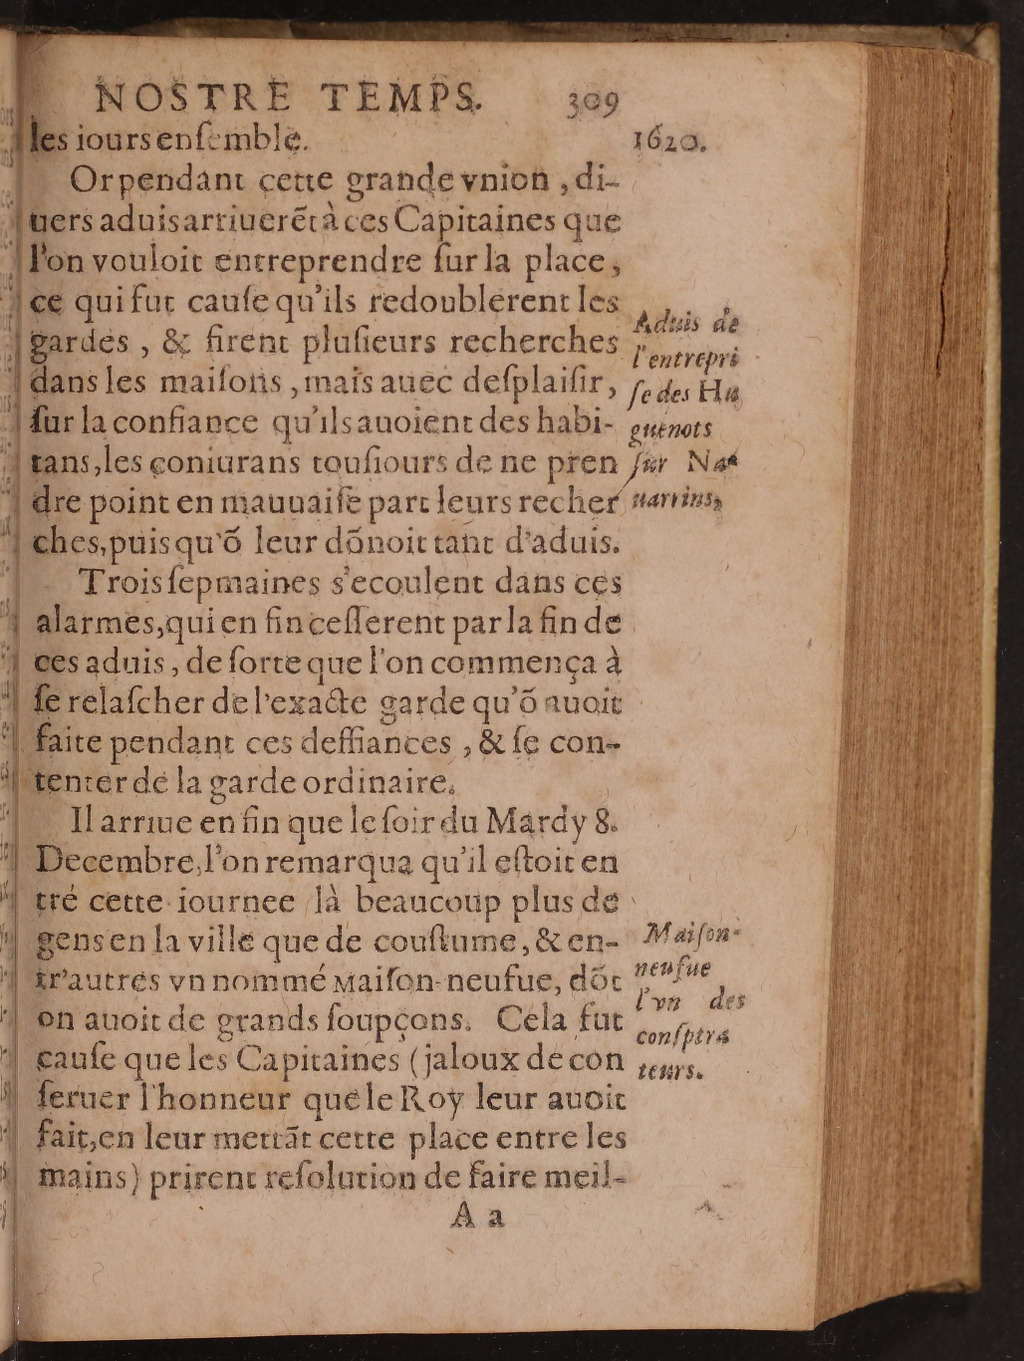 NOSTRE TEMPS. 309
les iours enſemble. 1620.
Or pendant cette grande vnion, di-
uers aduis arriuerēt à ces Capitaines que
l'on vouloit entreprendre ſur la place,
ce qui fut cauſe qu'ils redoublerent les
gardes, & firent pluſieurs recherches
dans les maiſons, mais auec deſplaiſir,
ſur la confiance qu'ils auoient des habi-
tans, les coniurans touſiours de ne pren
dre point en mauuaiſe part leurs recher
ches, puis qu'õ leur dõnoit tant d'aduis.
Aduis de
l'entrepri
ſe des Hu
guenots
ſur Na
uarrins,
Trois ſepmaines s'ecoulent dans ces
alarmes, qui en fin ceſſerent par la fin de
ces aduis, de ſorte que l'on commença à
ſe relaſcher de l'exacte garde qu'õ auoit
faite pendant ces deffiances, & ſe con-
tenter de la garde ordinaire.
Il arriue en fin que le ſoir du Mardy 8.
Decembre, l'on remarqua qu'il eſtoit en
tré cette iournee là beaucoup plus de
gens en la ville que de couſtume, & en-
tr'autres vn nommé Maiſon-neufue, dōt
on auoit de grands ſoupçons. Cela fut
cauſe que les Capitaines (jaloux de con
ſeruer l'honneur que le Roy leur auoit
fait, en leur mettāt cette place entre les
mains) prirent reſolution de faire meil-
Maiſon-
neufue
l'vn des
conſpira
teurs.
A a